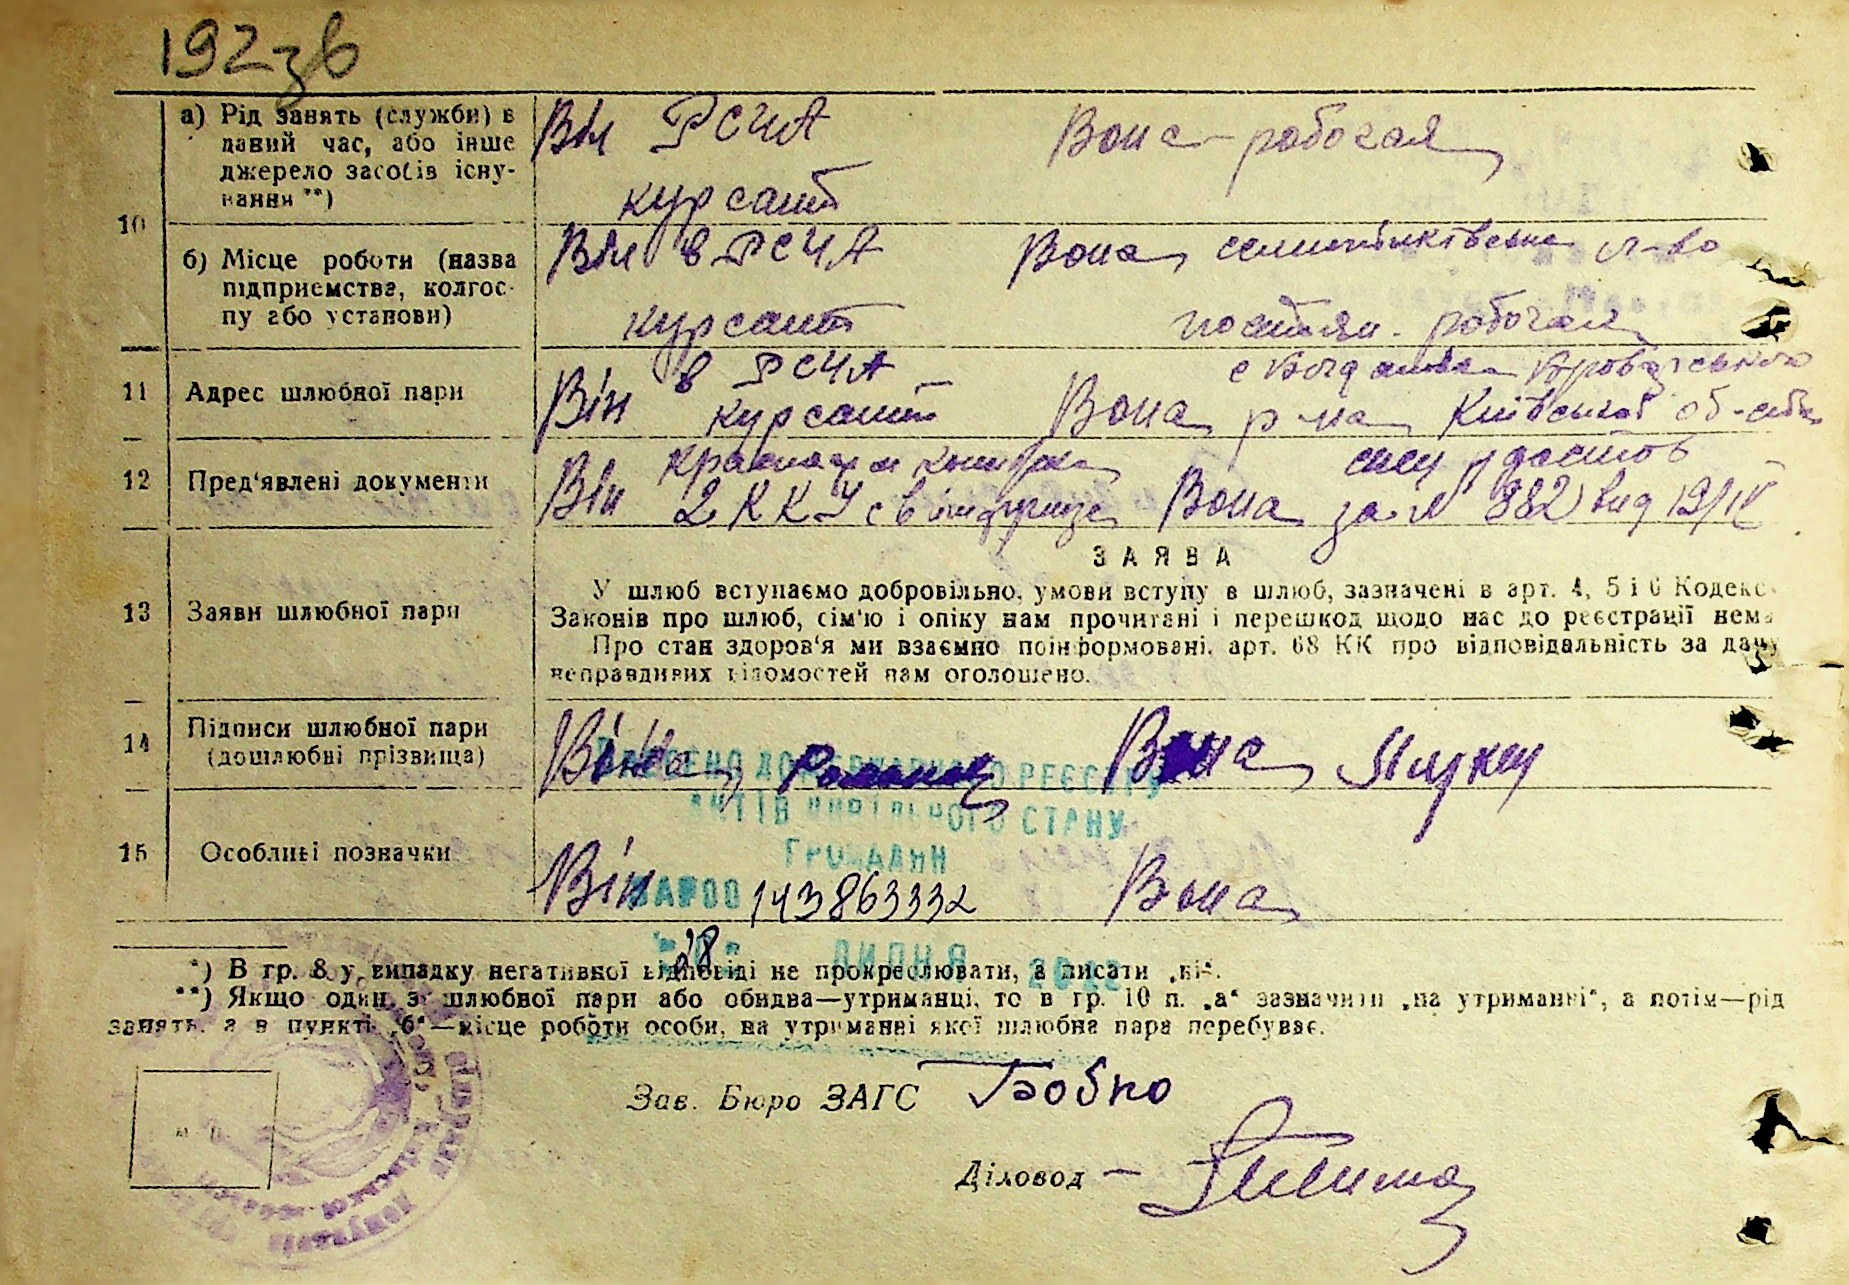 192 зв
а) Рід занять (служби) в Він РСЧА Вона - робочая
даний час, або інше
джерело засобів існу-
вання **) курсант
10
б) Місце роботи (назва Він в РСЧА Вона
підприємства, колгос-
пу або установи) курсант робочая
в РСЧА
11 Адрес шлюбної пари Він курсант Вона р-на Київської об-сть
12 Пред'явлені документи Він 2 ККУ Вона за № 882 вид 19/IV
ЗАЯВА
У шлюб вступаємо добровільно, умови вступу в шлюб, зазначені в арт. 4, 5 і 6 Кодекс
13 Заяви шлюбної пари Законів про шлюб, сім'ю і опіку нам прочитані і перешкод щодо нас до реєстрації нема
Про стан здоров'я ми взаємно поінформовані, арт. 68 КК про відповідальність за дачу
неправдивих відомостей нам оголошено.
14 Підписи шлюбної пари Він Вона
(дошлюбні прізвища)
ВНЕСЕНО ДО ДЕРЖАВНОГО РЕЄСТРУ
АКТІВ ЦИВІЛЬНОГО СТАНУ
ГРОМАДЯН
15 Особливі позначки Він ЗА №00 143863332 Вона
28 ЛИПНЯ 2012
*) В гр. 8 у випадку негативної відповіді не прокреслювати, а писати „ні“.
**) Якщо один з шлюбної пари або обидва—утриманці, то в гр. 10 п. „а“ зазначити „на утриманні“, а потім—рід
занять, а в пункті „б“—місце роботи особи, на утриманні якої шлюбна пара перебуває.
Зав. Бюро ЗАГС Бобко
м. п.
Діловод -